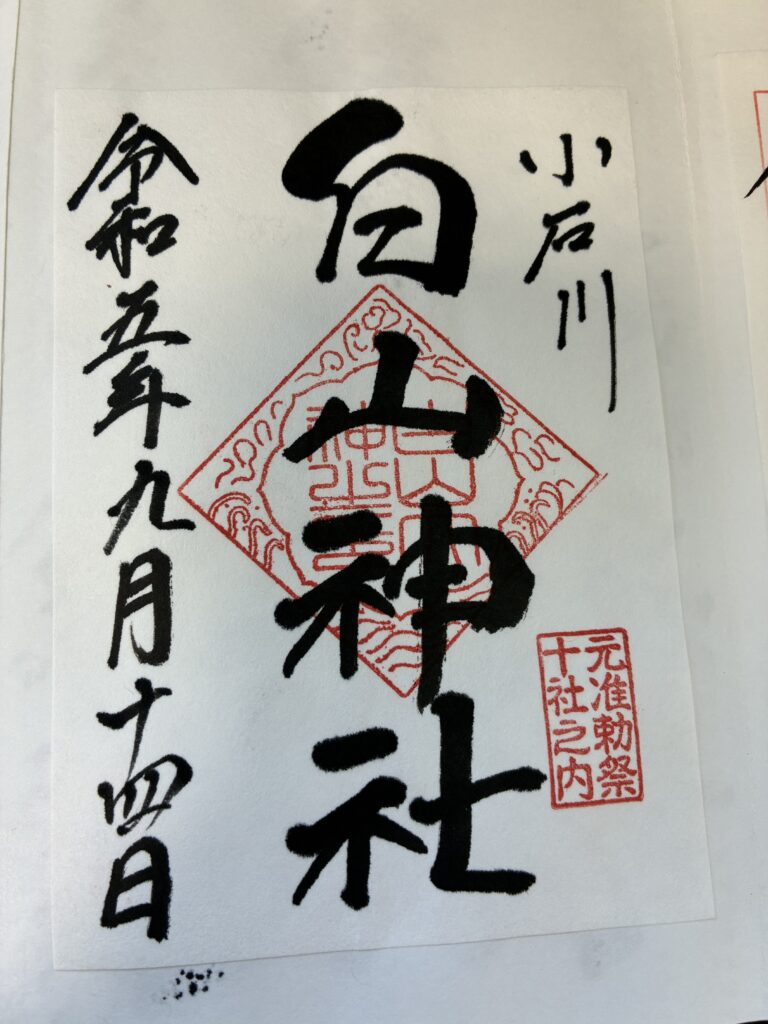 小石川
白山神社
元准勅祭
十社之内
令和五年九月十四日